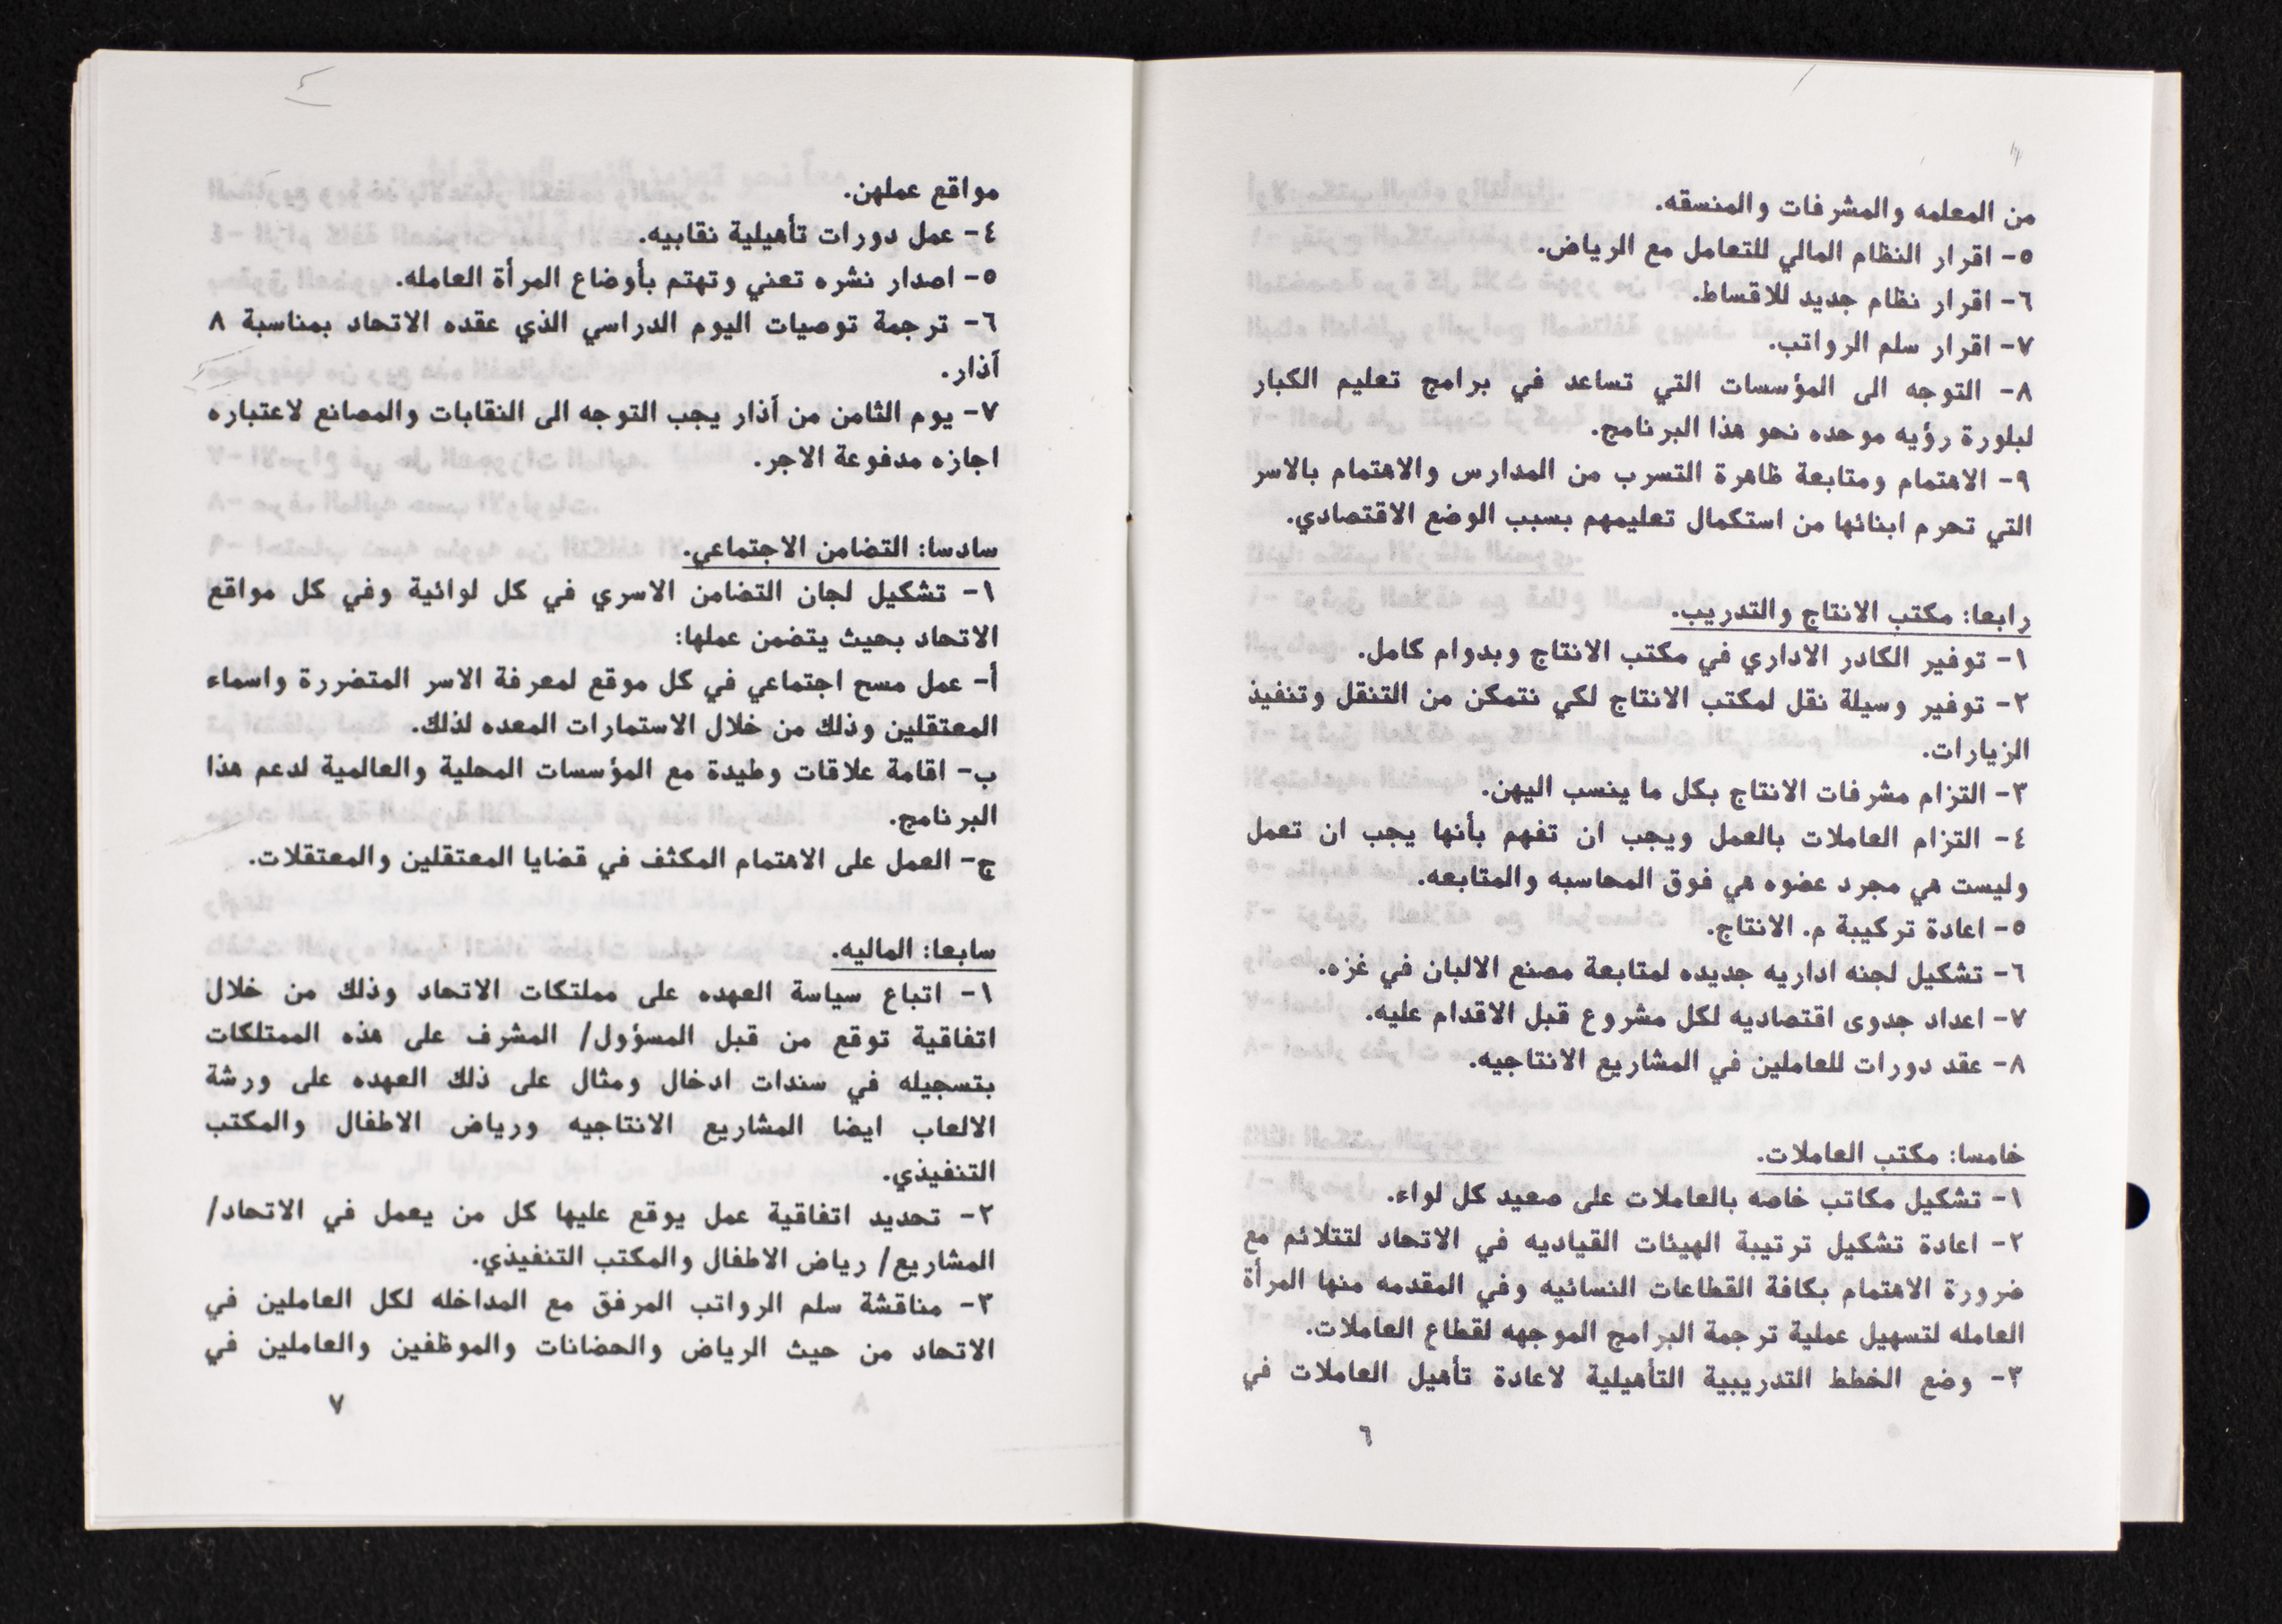 من المعلمه والمشرفات والمنسقه.
٥- اقرار النظام المالي للتعامل مع الرياض.
٦- اقرار نظام جديد للاقساط.
٧- اقرار سلم الرواتب.
٨- التوجه الى المؤسسات التي تساعد في برامج تعليم الكبار
لبلورة رؤيه موحده نحو هذا البرنامج.
٩- الاهتمام ومتابعة ظاهرة التسرب من المدارس والاهتمام بالاسر
التي تحرم ابنائها من استكمال تعليمهم بسبب الوضع الاقتصادي.
رابعا: مكتب الانتاج والتدريب.
١- توفير الكادر الاداري في مكتب الانتاج وبدوام كامل.
٢- توفير وسيلة نقل لمكتب الانتاج لكي نتمكن من التنقل وتنفيذ
الزيارات.
٣- التزام مشرفات الانتاج بكل ما ينسب اليهن.
٤- التزام العاملات بالعمل ويجب ان تفهم بأنها يجب ان تعمل
وليست هي مجرد عضوه هي فوق المحاسبه والمتابعه.
٥- اعادة تركيبة م. الانتاج.
٦- تشكيل لجنه اداريه جديده لمتابعة مصنع الالبان في غزه.
٧- اعداد جدوى اقتصاديه لكل مشروع قبل الاقدام عليه.
٨- عقد دورات للعاملين في المشاريع الانتاجيه.
خامسا: مكتب العاملات.
١- تشكيل مكاتب خاصه بالعاملات على صعيد كل لواء.
٢- اعادة تشكيل ترتيبة الهيئات القياديه في الاتحاد لتتلائم مع
ضرورة الاهتمام بكافة القطاعات النسائيه وفي المقدمه منها المرأة
العامله لتسهيل عملية ترجمة البرامج الموجهه لقطاع العاملات.
٣- وضع الخطط التدريبية التأهيلية لاعادة تأهيل العاملات في
٦
مواقع عملهن.
٤- عمل دورات تأهيلية نقابيه.
٥- اصدار نشره تعني وتهتم بأوضاع المرأة العامله.
٦- ترجمة توصيات اليوم الدراسي الذي عقده الاتحاد بمناسبة ٨
آذار.
٧- يوم الثامن من آذار يجب التوجه الى النقابات والمصانع لاعتباره
اجازه مدفوعة الاجر.
سادسا: التضامن الاجتماعي.
١- تشكيل لجان التضامن الاسري في كل لوائية وفي كل مواقع
الاتحاد بحيث يتضمن عملها:
أ- عمل مسح اجتماعي في كل موقع لمعرفة الاسر المتضررة واسماء
المعتقلين وذلك من خلال الاستمارات المعده لذلك.
ب- اقامة علاقات وطيدة مع المؤسسات المحلية والعالمية لدعم هذا
البرنامج.
ج- العمل على الاهتمام المكثف في قضايا المعتقلين والمعتقلات.
سابعا: الماليه.
١- اتباع سياسة العهده على مملتكات الاتحاد وذلك من خلال
اتفاقية توقع من قبل المسؤول/ المشرف على هذه الممتلكات
بتسجيله في سندات ادخال ومثال على ذلك العهده على ورشة
الالعاب ايضا المشاريع الانتاجيه ورياض الاطفال والمكتب
التنفيذي.
٢- تحديد اتفاقية عمل يوقع عليها كل من يعمل في الاتحاد/
المشاريع/ رياض الاطفال والمكتب التنفيذي.
٣- مناقشة سلم الرواتب المرفق مع المداخله لكل العاملين في
الاتحاد من حيث الرياض والحضانات والموظفين والعاملين في
٧